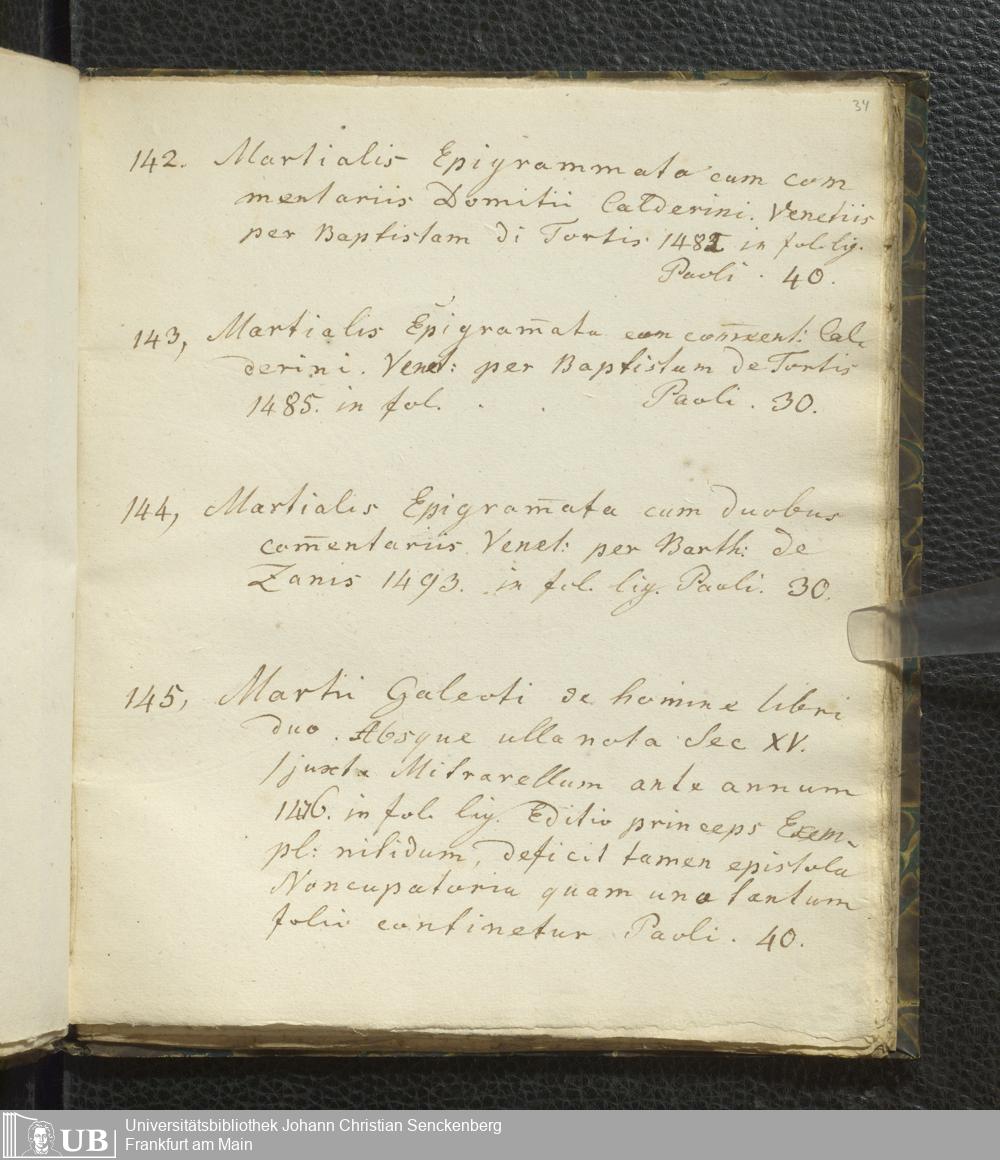 34
142. Martialis Epigrammata cum com
mentariis Domitii Calderini. Venetiis
per Baptistam di Tortis 1482 in fol. lig.
Paoli . 40.
143, Martialis Epigram̄ata cum com̄ent: Cal-
derini. Venet: per Baptistam de Tortis
1485. in fol. . . Paoli . 30.
144, Martialis Epigram̄ata cum duobus
com̄entariis Venet: per Barth: de
Zanis 1493. in fol. lig. Paoli. 30.
145, Martii Galeoti de homine libri
duo . Absque ulla nota Sec XV.
/juxta Mitrarellum ante annum
1476. in fol. lig. Editio princeps Exem-
pl: nitidum, deficit tamen epistola
Noncupatoria quam uno tantum
folio continetur Paoli . 40.
UB Universitätsbibliothek Johann Christian Senckenberg
Frankfurt am Main